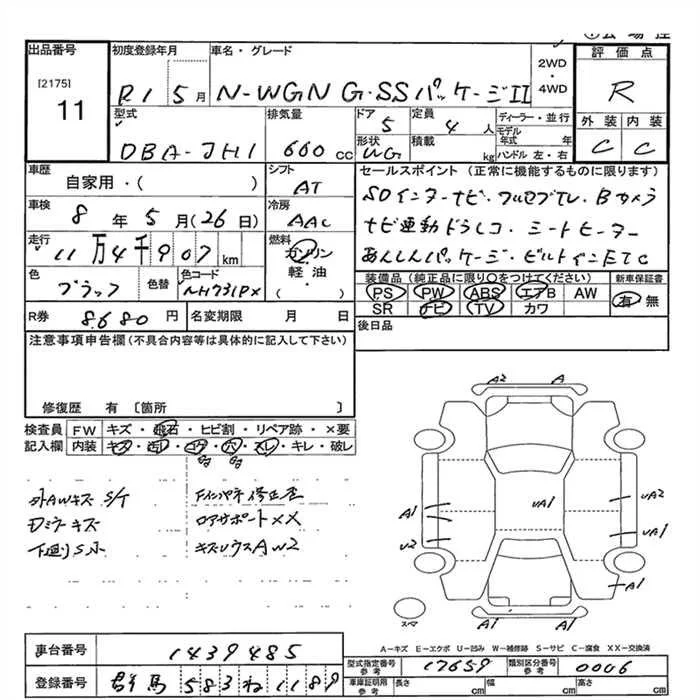 出品番号
[2175]
11
初度登録年月
R1 5月
車名・グレード
N-WGN G・SSパッケージII
2WD
・
4WD
評価点
R
外装 内装
C C
型式
DBA-JH1
排気量
660 cc
ドア
5
定員
4 人
形状
WG
積載
kg
ディーラー・並行
モデル
年式 年
ハンドル 左・右
車歴
自家用・( )
シフト
AT
車検
8年5月(26日)
冷房
AAC
走行
11万4千907km
燃料
ガソリン
軽油
・
( )
色
ブラック
色替
色コード
NH731PX
R券
8,680円
名変期限 月 日
セールスポイント (正常に機能するものに限ります)
SDインターナビ・フルセグTV・Bカメラ
ナビ連動ドラレコ・シートヒーター
あんしんパッケージ・ビルトインETC
装備品(純正品に限り○をつけてください)
PS PW ABS エアB AW
SR ナビ TV カワ
新車保証書
有 無
後日品
注意事項申告欄(不具合内容等は具体的に記入して下さい)
修復歴 有〔箇所 〕
検査員
記入欄
FW キズ・飛石・ヒビ割・リペア跡・×要
内装 キズ・汚レ・コゲ・穴・スレ・キレ・破レ
外AWキズ S/T
Dミラーキズ
下廻りS小
Fインパネ修正歪
ロアサポートXX
キズUウスAW2
A2 A
A1
U2
UA1
UA2
UA1
A1
A1 A1
スマ
A-キズ E-エクボ U-凹み W-補修跡 S-サビ C-腐食 XX-交換済
車台番号 1439485
登録番号 群馬 583 ね 1189
型式指定番号
参考
17659
類別区分番号
参考
0006
車庫証明用
参考
長さ cm 幅 cm 高さ cm